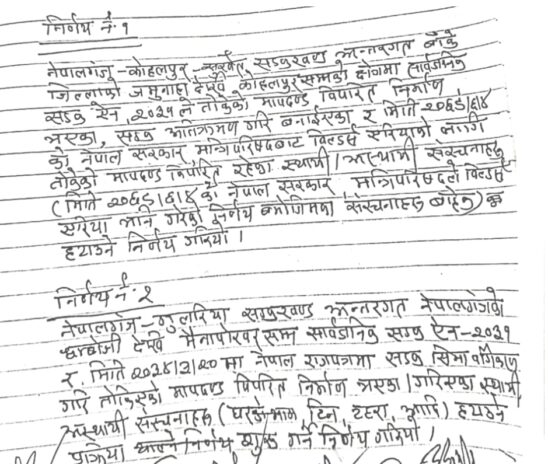 निर्णय नं. १
नेपालगंज - कोहलपुर - सुर्खेत सडकखण्ड अन्तरगत बाँके
जिल्लाको जमुनाहा देखि कोहलपुर सम्मको क्षेत्रमा सार्वजनिक
सडक ऐन, २०३१ ले तोकेको मापदण्ड विपरित निर्माण
भएका, सडक अतिक्रमण गरि बनाईएका र मिति २०६३/६/४
को नेपाल सरकार मन्त्रिपरिषदबाट विल्डर्स सरियाको लागि
तोकेको मापदण्ड विपरित रहेका स्थायी / अस्थायी संरचनाहरु
(मिति २०६३/६/४ को नेपाल सरकार मन्त्रिपरिषदले विल्डर्स
सरिया भनि गरेको निर्णय बमोजिमका संरचनाहरु बाहेक)
हटाउने निर्णय गरियो ।
निर्णय नं. २
नेपालगंज - गुलरिया सडकखण्ड अन्तरगत नेपालगंजको
देखि मैनापोखर सम्म सार्वजनिक सडक ऐन - २०३१
र मिति २०३४/३/२० मा नेपाल राजपत्रमा सडक सिमा
गरि तोकिएको मापदण्ड विपरित निर्माण भएका / गरिएका स्थायी
अस्थायी संरचनाहरु (घरको भाग, टिन, टहरा, आदि) हटाउने
प्रक्रिया निर्णय गरियो ।